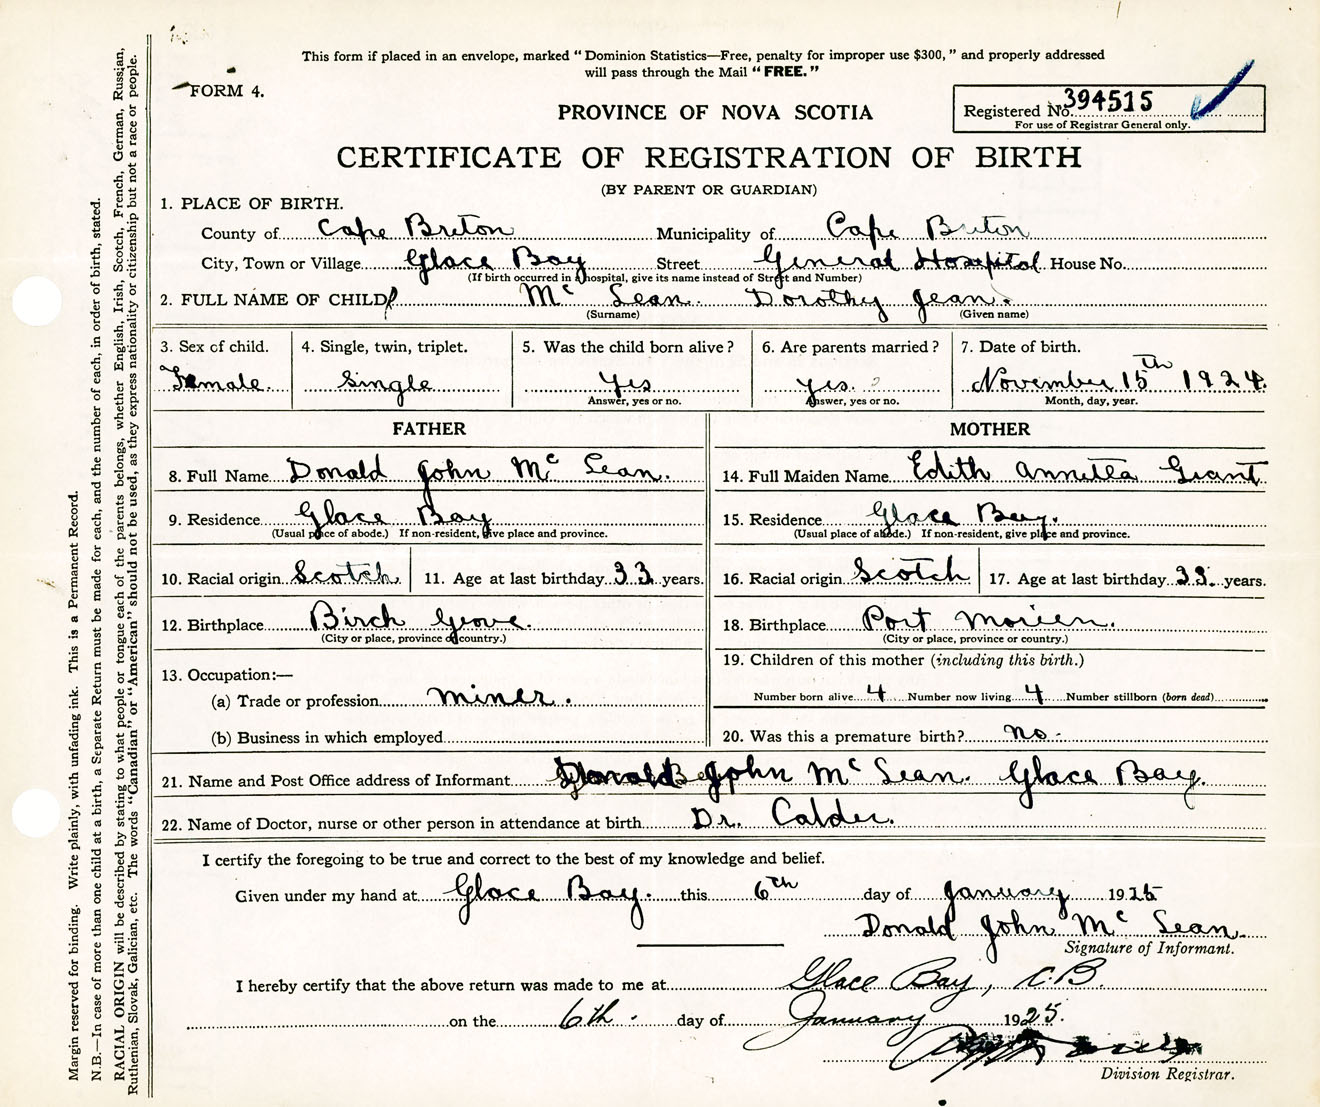 This form if placed in an envelope, marked "Dominion Statistics—Free, penalty for improper use $300," and properly addressed
will pass through the Mail "FREE."
FORM 4.
PROVINCE OF NOVA SCOTIA
Registered No. 394515
For use of Registrar General only.
CERTIFICATE OF REGISTRATION OF BIRTH
(BY PARENT OR GUARDIAN)
1. PLACE OF BIRTH.
County of Cape Breton Municipality of Cape Breton
City, Town or Village Glace Bay Street General Hospital House No.
(If birth occurred in a hospital, give its name instead of Street and Number)
2. FULL NAME OF CHILD Mc Lean Dorothy Jean.
(Surname) (Given name)
3. Sex of child. 4. Single, twin, triplet. 5. Was the child born alive? 6. Are parents married? 7. Date of birth.
Female. Single Yes Yes. November 15th 1924.
Answer, yes or no. Answer, yes or no. Month, day, year.
FATHER MOTHER
8. Full Name Donald John Mc Lean. 14. Full Maiden Name Edith Annetta Grant
9. Residence Glace Bay 15. Residence Glace Bay.
(Usual place of abode.) If non-resident, give place and province. (Usual place of abode.) If non-resident, give place and province.
10. Racial origin Scotch. 11. Age at last birthday 33 years. 16. Racial origin Scotch 17. Age at last birthday 33. years.
12. Birthplace Birch Grove. 18. Birthplace Port Morien.
(City or place, province or country.) (City or place, province or country.)
13. Occupation:— 19. Children of this mother (including this birth.)
(a) Trade or profession miner. Number born alive 4 Number now living 4 Number stillborn (born dead)
(b) Business in which employed 20. Was this a premature birth? no.
21. Name and Post Office address of Informant Donald John Mc Lean. Glace Bay.
22. Name of Doctor, nurse or other person in attendance at birth Dr. Calder.
I certify the foregoing to be true and correct to the best of my knowledge and belief.
Given under my hand at Glace Bay. this 6th day of January 1925
Donald John Mc Lean.
Signature of Informant.
I hereby certify that the above return was made to me at Glace Bay, C.B.
on the 6th. day of January 1925.
Division Registrar.
Margin reserved for binding. Write plainly, with unfading ink. This is a Permanent Record.
N.B.—In case of more than one child at a birth, a Separate Return must be made for each, and the number of each, in order of birth, stated.
RACIAL ORIGIN will be described by stating to what people or tongue each of the parents belongs, whether English, Irish, Scotch, French, German, Russian,
Ruthenian, Slovak, Galician, etc. The words "Canadian" or "American" should not be used, as they express nationality or citizenship but not a race or people.